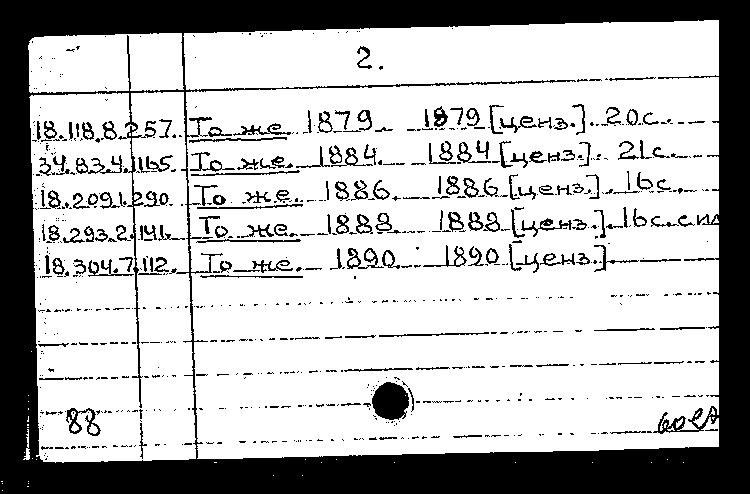 2.
18.118.8.257. То же 1879. 1879 [ценз.]. 20с.
34.83.4.1165. То же. 1884. 1884 [ценз.]. 21с.
18.209.1.290 То же. 1886. 1886 [ценз.]. 16с.
18.293.2.141. То же. 1888. 1888 [ценз.]. 16с. с ил
18.304.7.112. То же. 1890. 1890 [ценз].
88